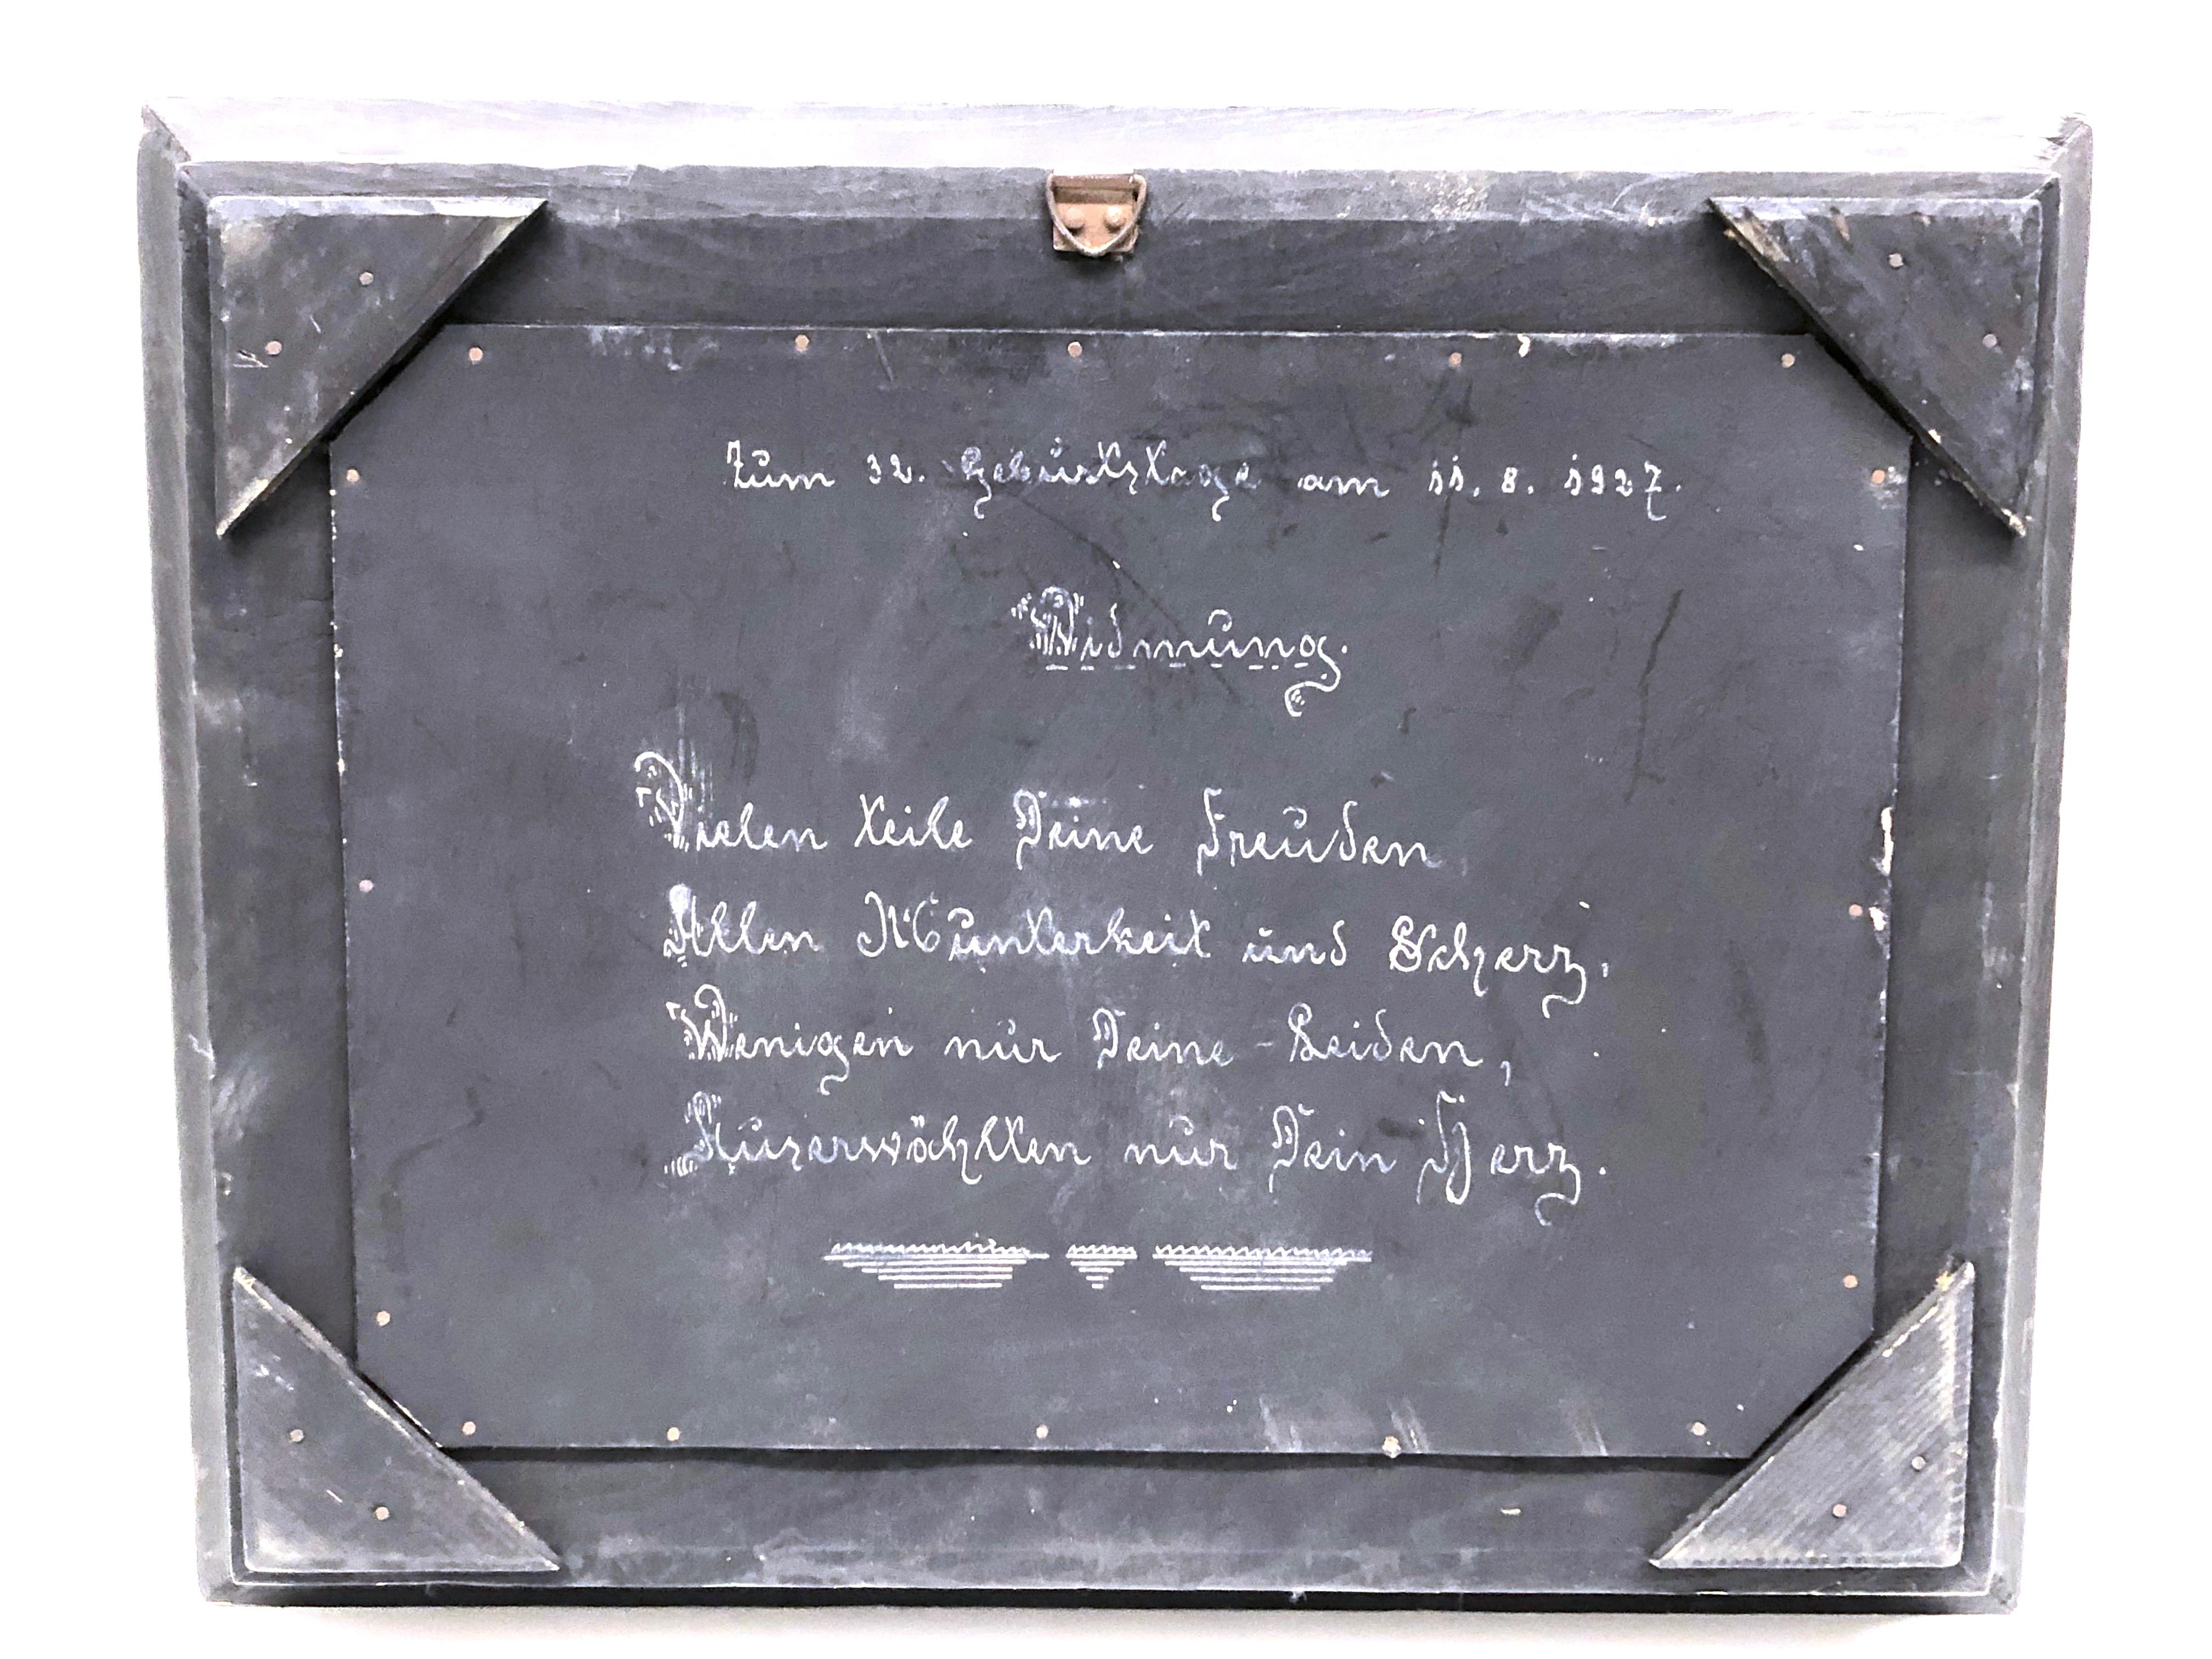 Zum 32. Geburtstage am 11. 8. 1927.
Widmung.
Vielen teile Deine Freuden
Allen Munterkeit und Scherz.
Wenigen nur Deine Leiden,
Auserwählten nur Dein Herz.